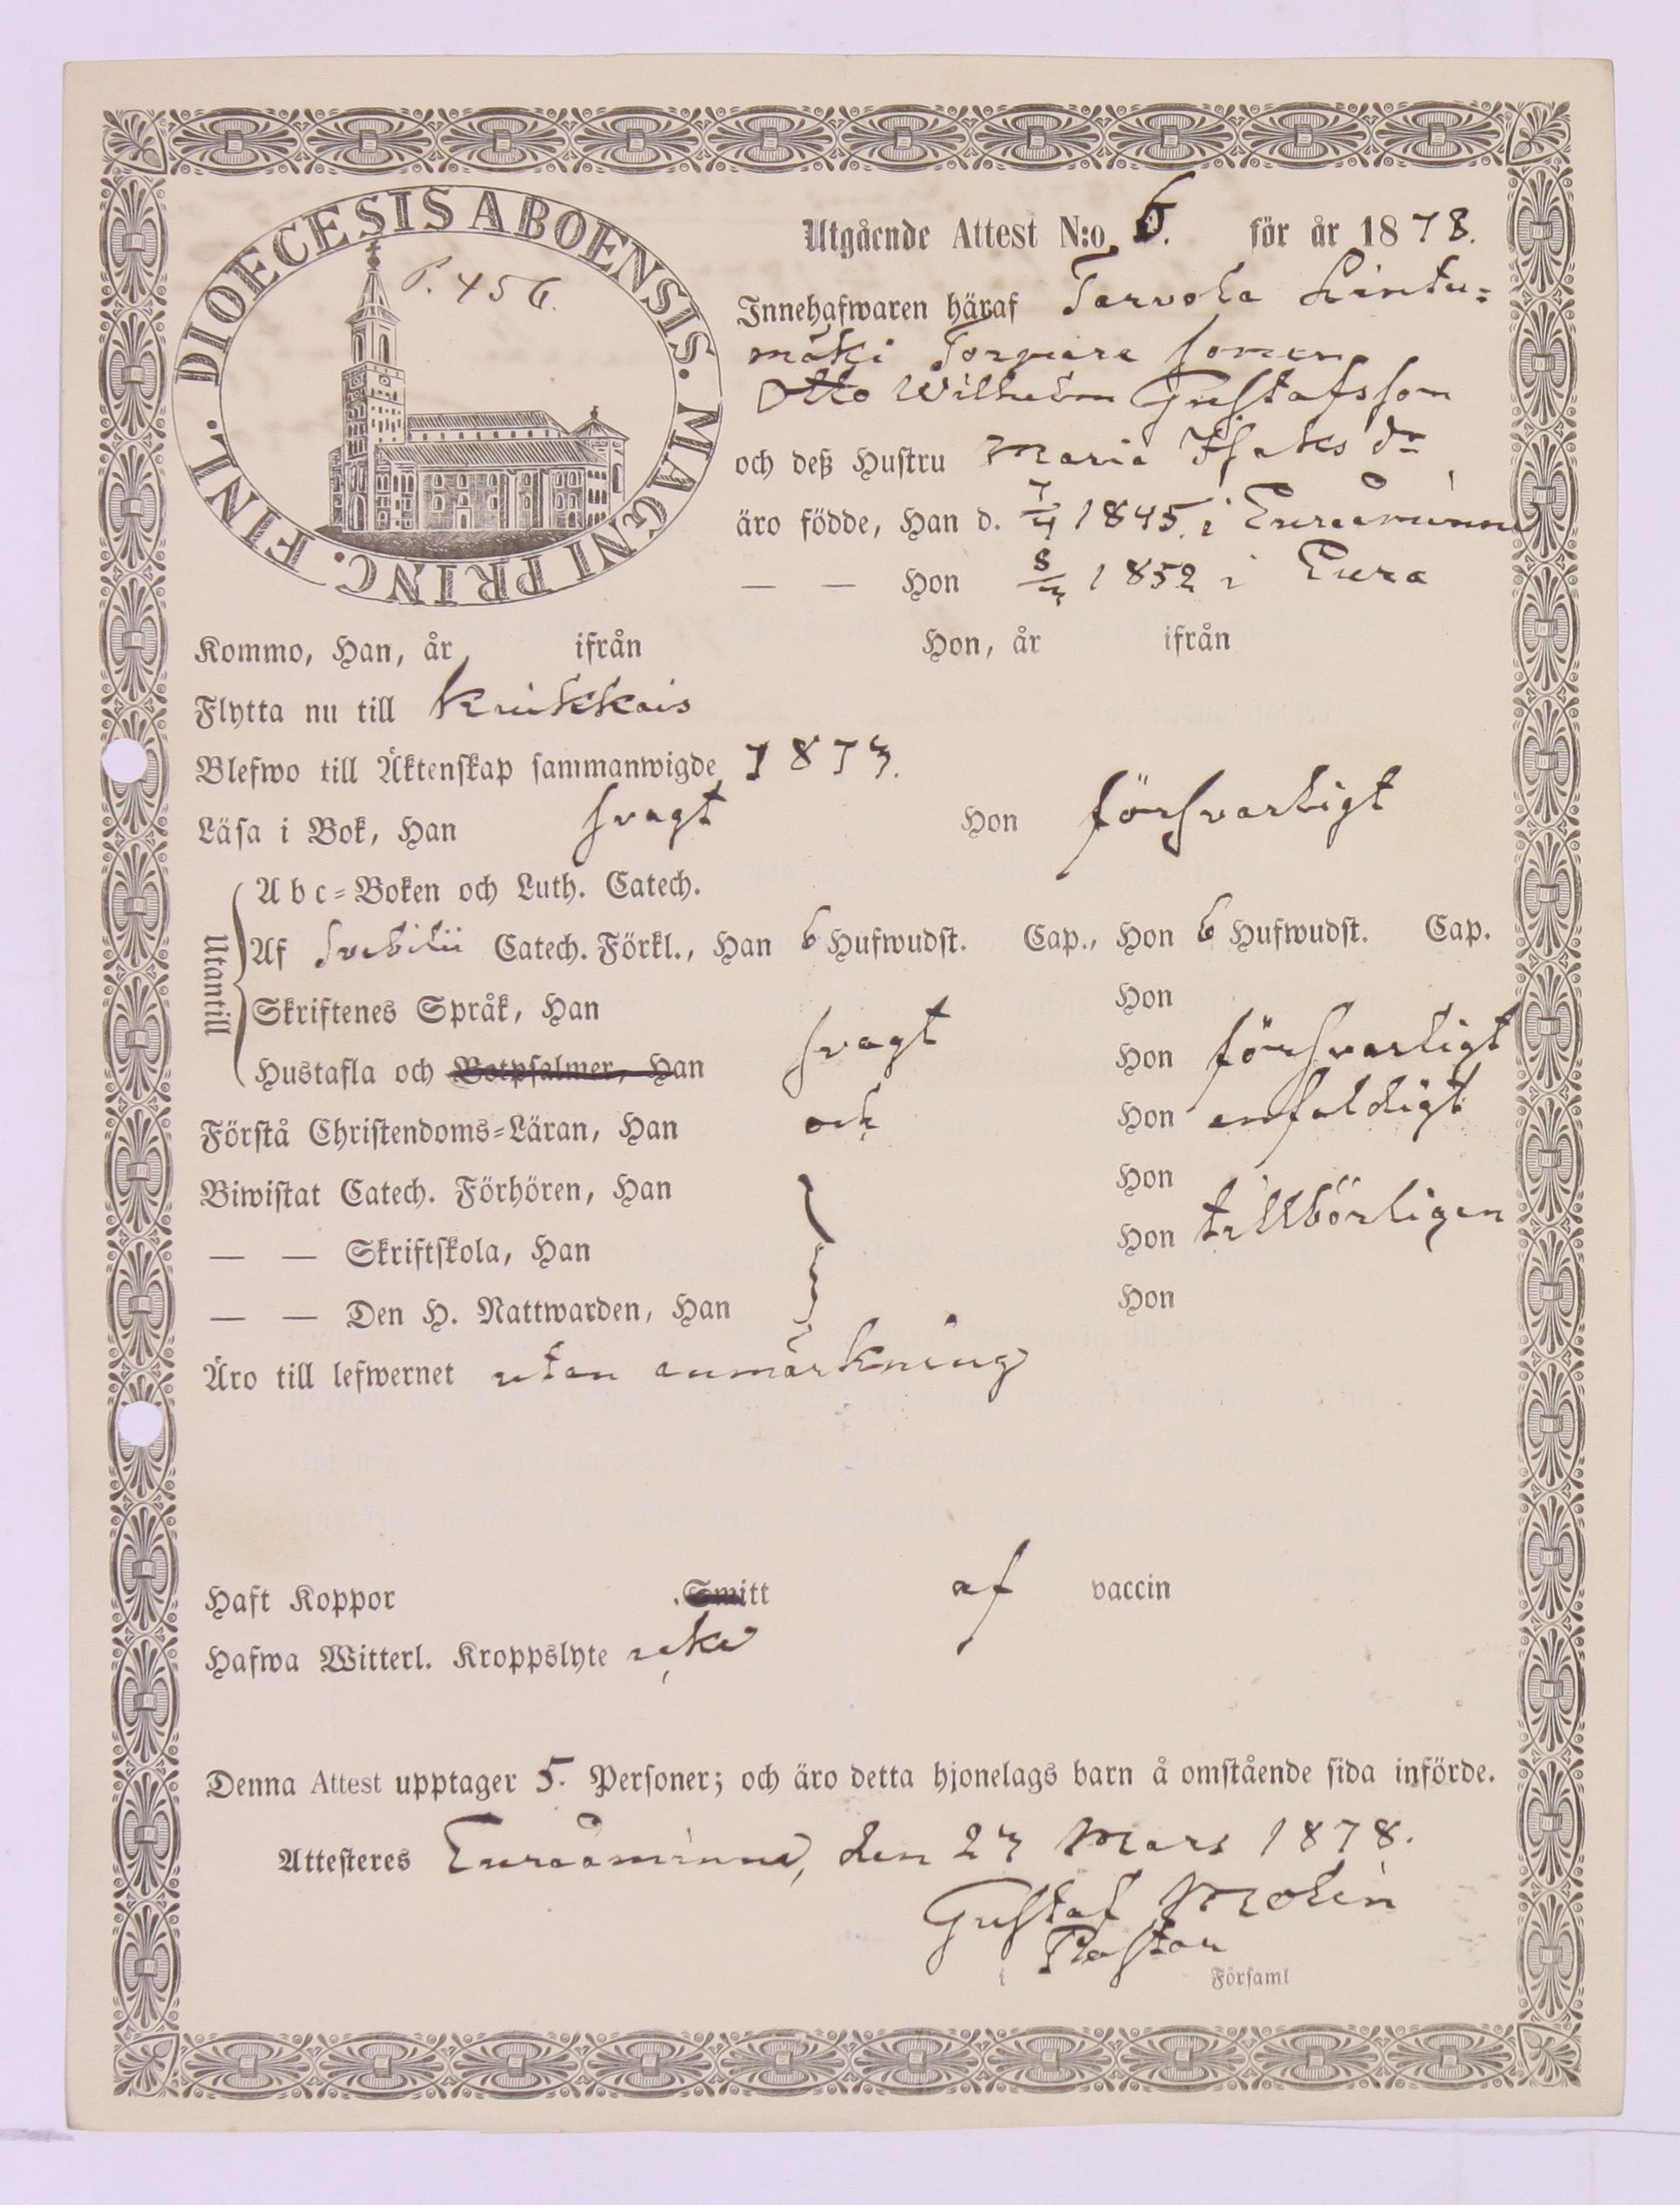 DIOECESIS ABOENSIS. MAGNI PRINC. FINL.
P. 456.
Utgående Attest N:o 6. för år 1878.
Innehafwaren häraf Tarvola Lintu=
mäki Torpare sonen
Otto Wilhelm Gustafsson
och deß Hustru Maria Isaksdr
äro födde, Han d. 7/4 1845. i Euraåminne
— — Hon 8/4 1852 i Eura
Kommo, Han, år ifrån Hon, år ifrån
Flytta nu till Kiukkais
Blefwo till Äktenskap sammanwigde 1873.
Läsa i Bok, Han svagt Hon försvarligt
Utantill
Abc=Boken och Luth. Catech.
Af Svebilii Catech. Förkl., Han 6 Hufwudst. Cap., Hon 6 Hufwudst. Cap.
Skriftenes Språk, Han Hon
Hustafla och Botpsalmer, Han svagt Hon försvarligt
Förstå Christendoms=Läran, Han och Hon enfaldigt
Biwistat Catech. Förhören, Han Hon
— — Skriftskola, Han Hon tillbörligen
— — Den H. Nattwarden, Han Hon
Äro till lefwernet utan anmärkning
Haft Koppor Smitt af vaccin
Hafwa Witterl. Kroppslyte icke
Denna Attest upptager 5. Personer; och äro detta hjonelags barn å omstående sida införde.
Attesteres Euraåminne, den 27 Mars 1878.
Gustaf Molin
Pastor
i Församl